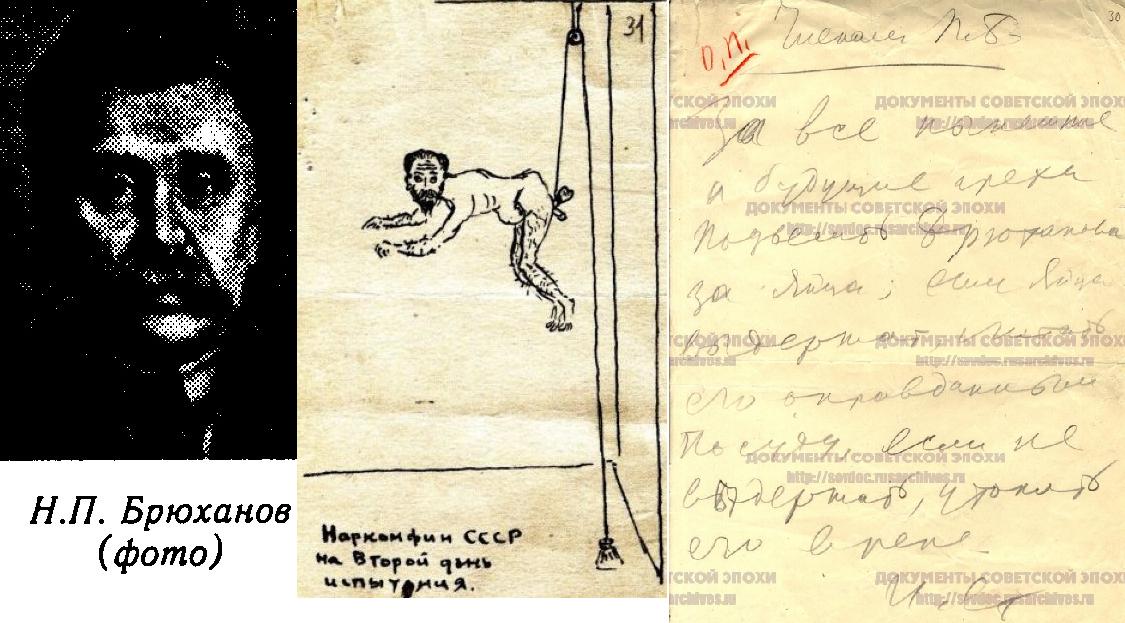 Н.П. Брюханов
(фото)
31
Наркомфин СССР
на второй день
испытания.
30
О.П.
Членам ПБ
За все нынешние
и будущие грехи
подвесить Брюханова
за яйца; если яйца
выдержат, считать
его оправданным
по суду, если не
выдержат, утопить
его в реке
И. Ст
ДОКУМЕНТЫ СОВЕТСКОЙ ЭПОХИ
http://sovdoc.rusarchives.ru